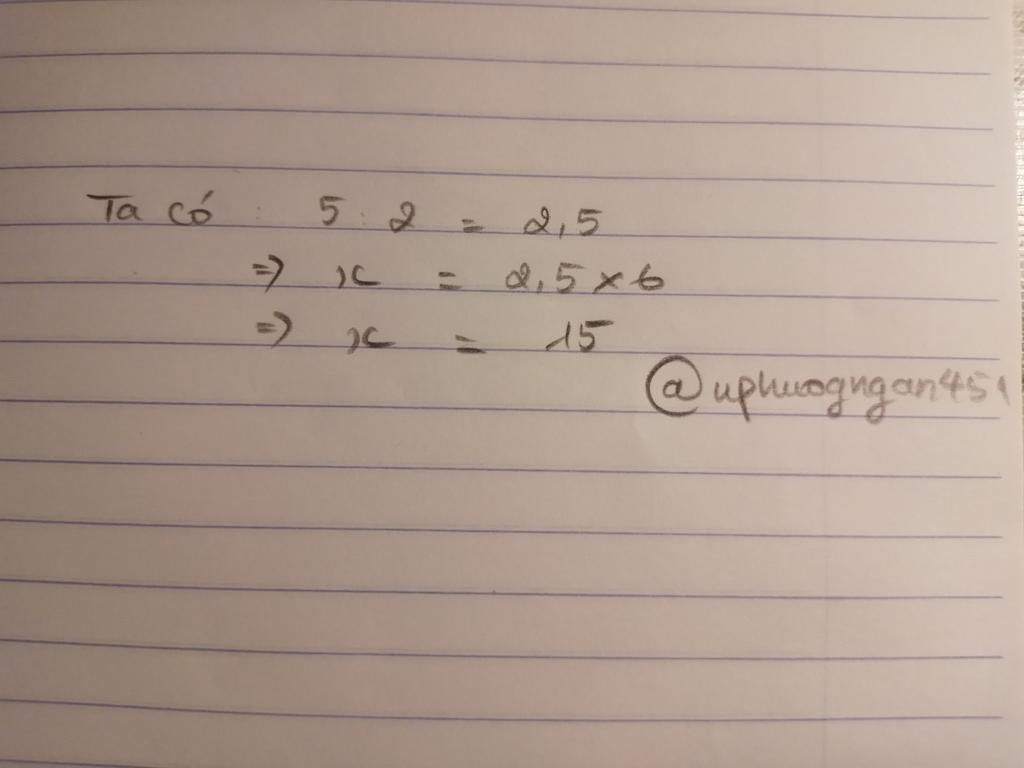 Ta có : 5 : 2 = 2,5
=> x = 2,5 x 6
=> x = 15
@uphuogngan451